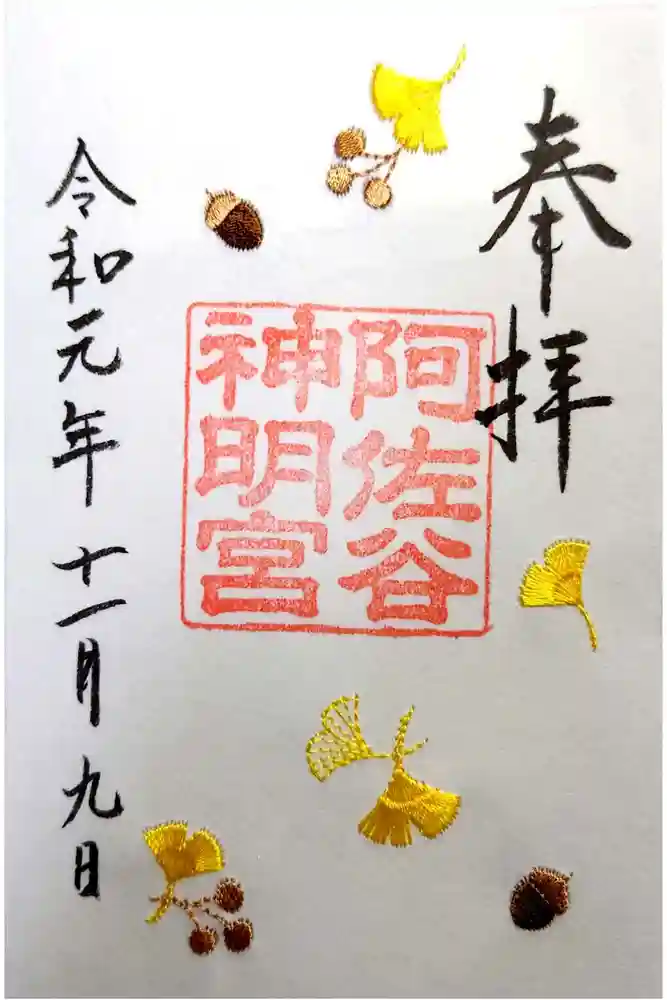 奉拝
阿佐谷
神明宮
令和元年十一月九日